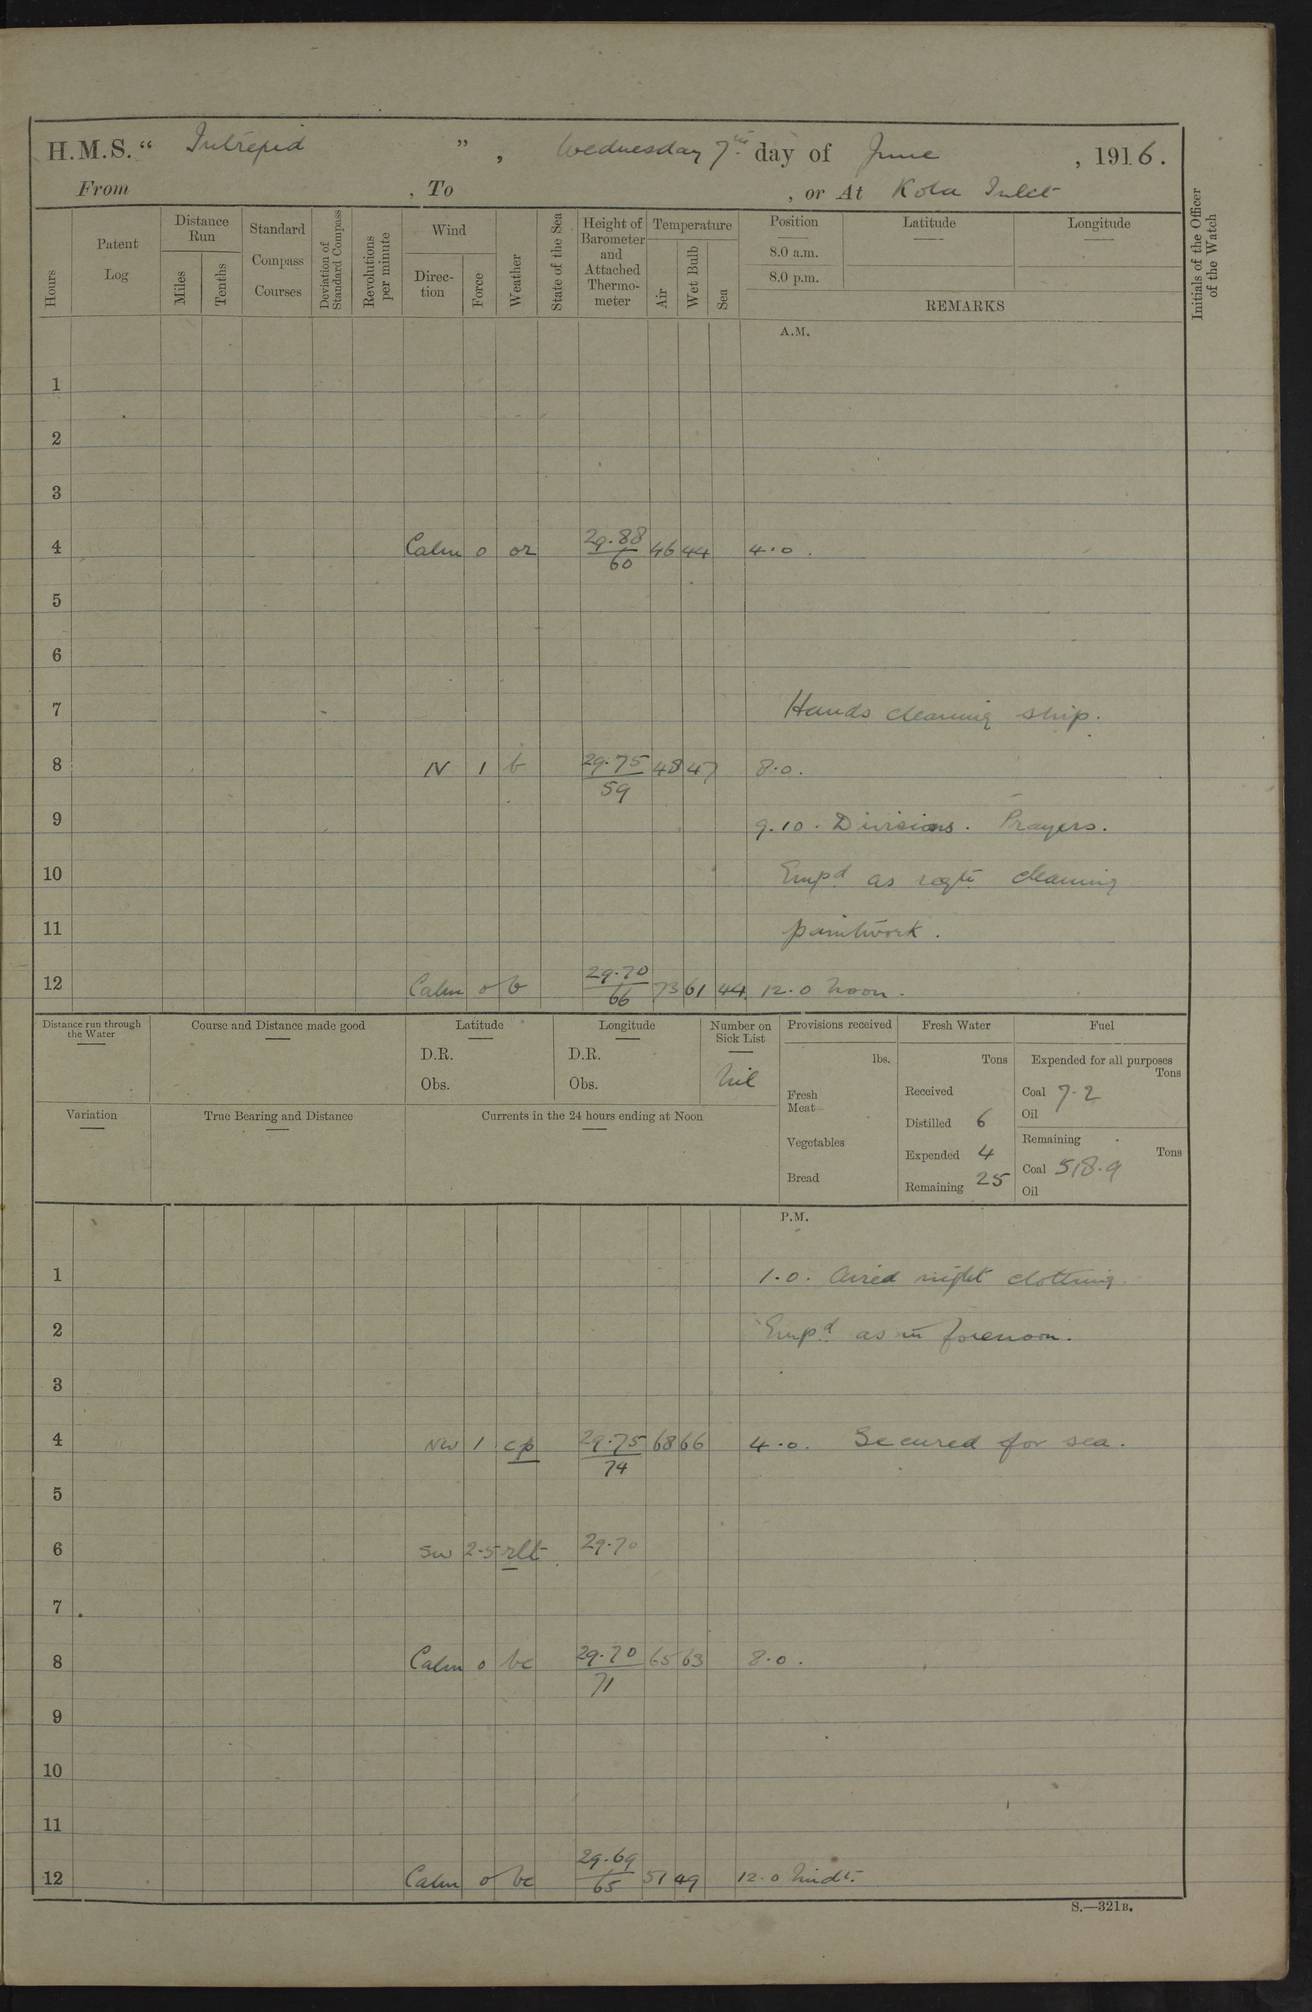 H.M.S. “ Intrepid ” , Wednesday 7th day of June , 1916.
From , To , or At Kola Inlet
Hours
Patent Log
Distance Run
Miles
Tenths
Standard Compass Courses
Deviation of Standard Compass
Revolutions per minute
Wind
Direction
Force
Weather
State of the Sea
Height of Barometer and Attached Thermometer
Temperature
Air
Wet Bulb
Sea
Position
8.0 a.m.
8.0 p.m.
Latitude
Longitude
REMARKS
Initials of the Officer of the Watch
A.M.
1
2
3
4 Calm 0 or 29.88/60 46 44 4.0.
5
6
7 Hands cleaning ship.
8 N 1 b 29.75/59 48 47 8.0.
9 9.10. Divisions. Prayers.
10 Empd as reqte cleaning
11 paintwork.
12 Calm 0 b 29.70/66 73 61 44 12.0 Noon.
Distance run through the Water
Course and Distance made good
Latitude
D.R.
Obs.
Longitude
D.R.
Obs.
Number on Sick List
Nil
Variation
True Bearing and Distance
Currents in the 24 hours ending at Noon
Provisions received
lbs.
Fresh Meat
Vegetables
Bread
Fresh Water
Tons
Received
Distilled 6
Expended 4
Remaining 25
Fuel
Expended for all purposes
Tons
Coal 7.2
Oil
Remaining
Tons
Coal 518.9
Oil
P.M.
1 1.0. Aired night clothing.
2 Empd as in forenoon.
3
4 NW 1 cp 29.75/74 68 66 4.0. Secured for sea.
5
6 SW 2-5 rlt 29.70
7
8 Calm 0 bc 29.70/71 65 63 8.0.
9
10
11
12 Calm 0 bc 29.69/65 51 49 12.0 Midt.
S.—321B.